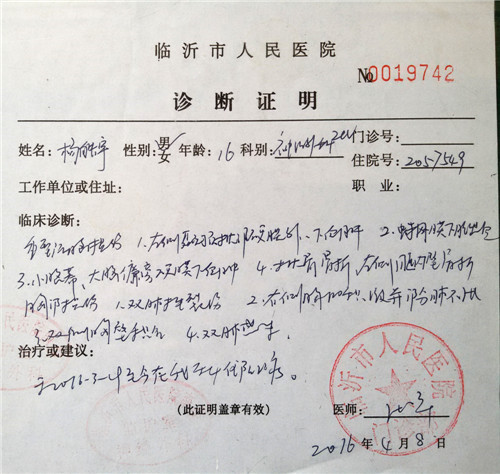 临沂市人民医院
№0019742
诊断证明
姓名:杨 性别:男女 年龄:16 科别:神经外科 门诊号:
住院号:2057549
工作单位或住址: 职业:
临床诊断:
重型颅脑损伤 1.右侧 硬膜外、下血肿 2.蛛网膜下腔出血
3.小脑幕、大脑镰旁硬膜下血肿 4. 骨折,右侧眶内壁骨折
胸部损伤 1.双肺挫裂伤 2.右侧胸腔积液并部分肺不张
3.双侧胸壁积气 4.双肺炎症。
治疗或建议:
于2016-3-4至今在我 住院治疗。
(此证明盖章有效) 医师:
2016年4月8日
临沂市人民医院